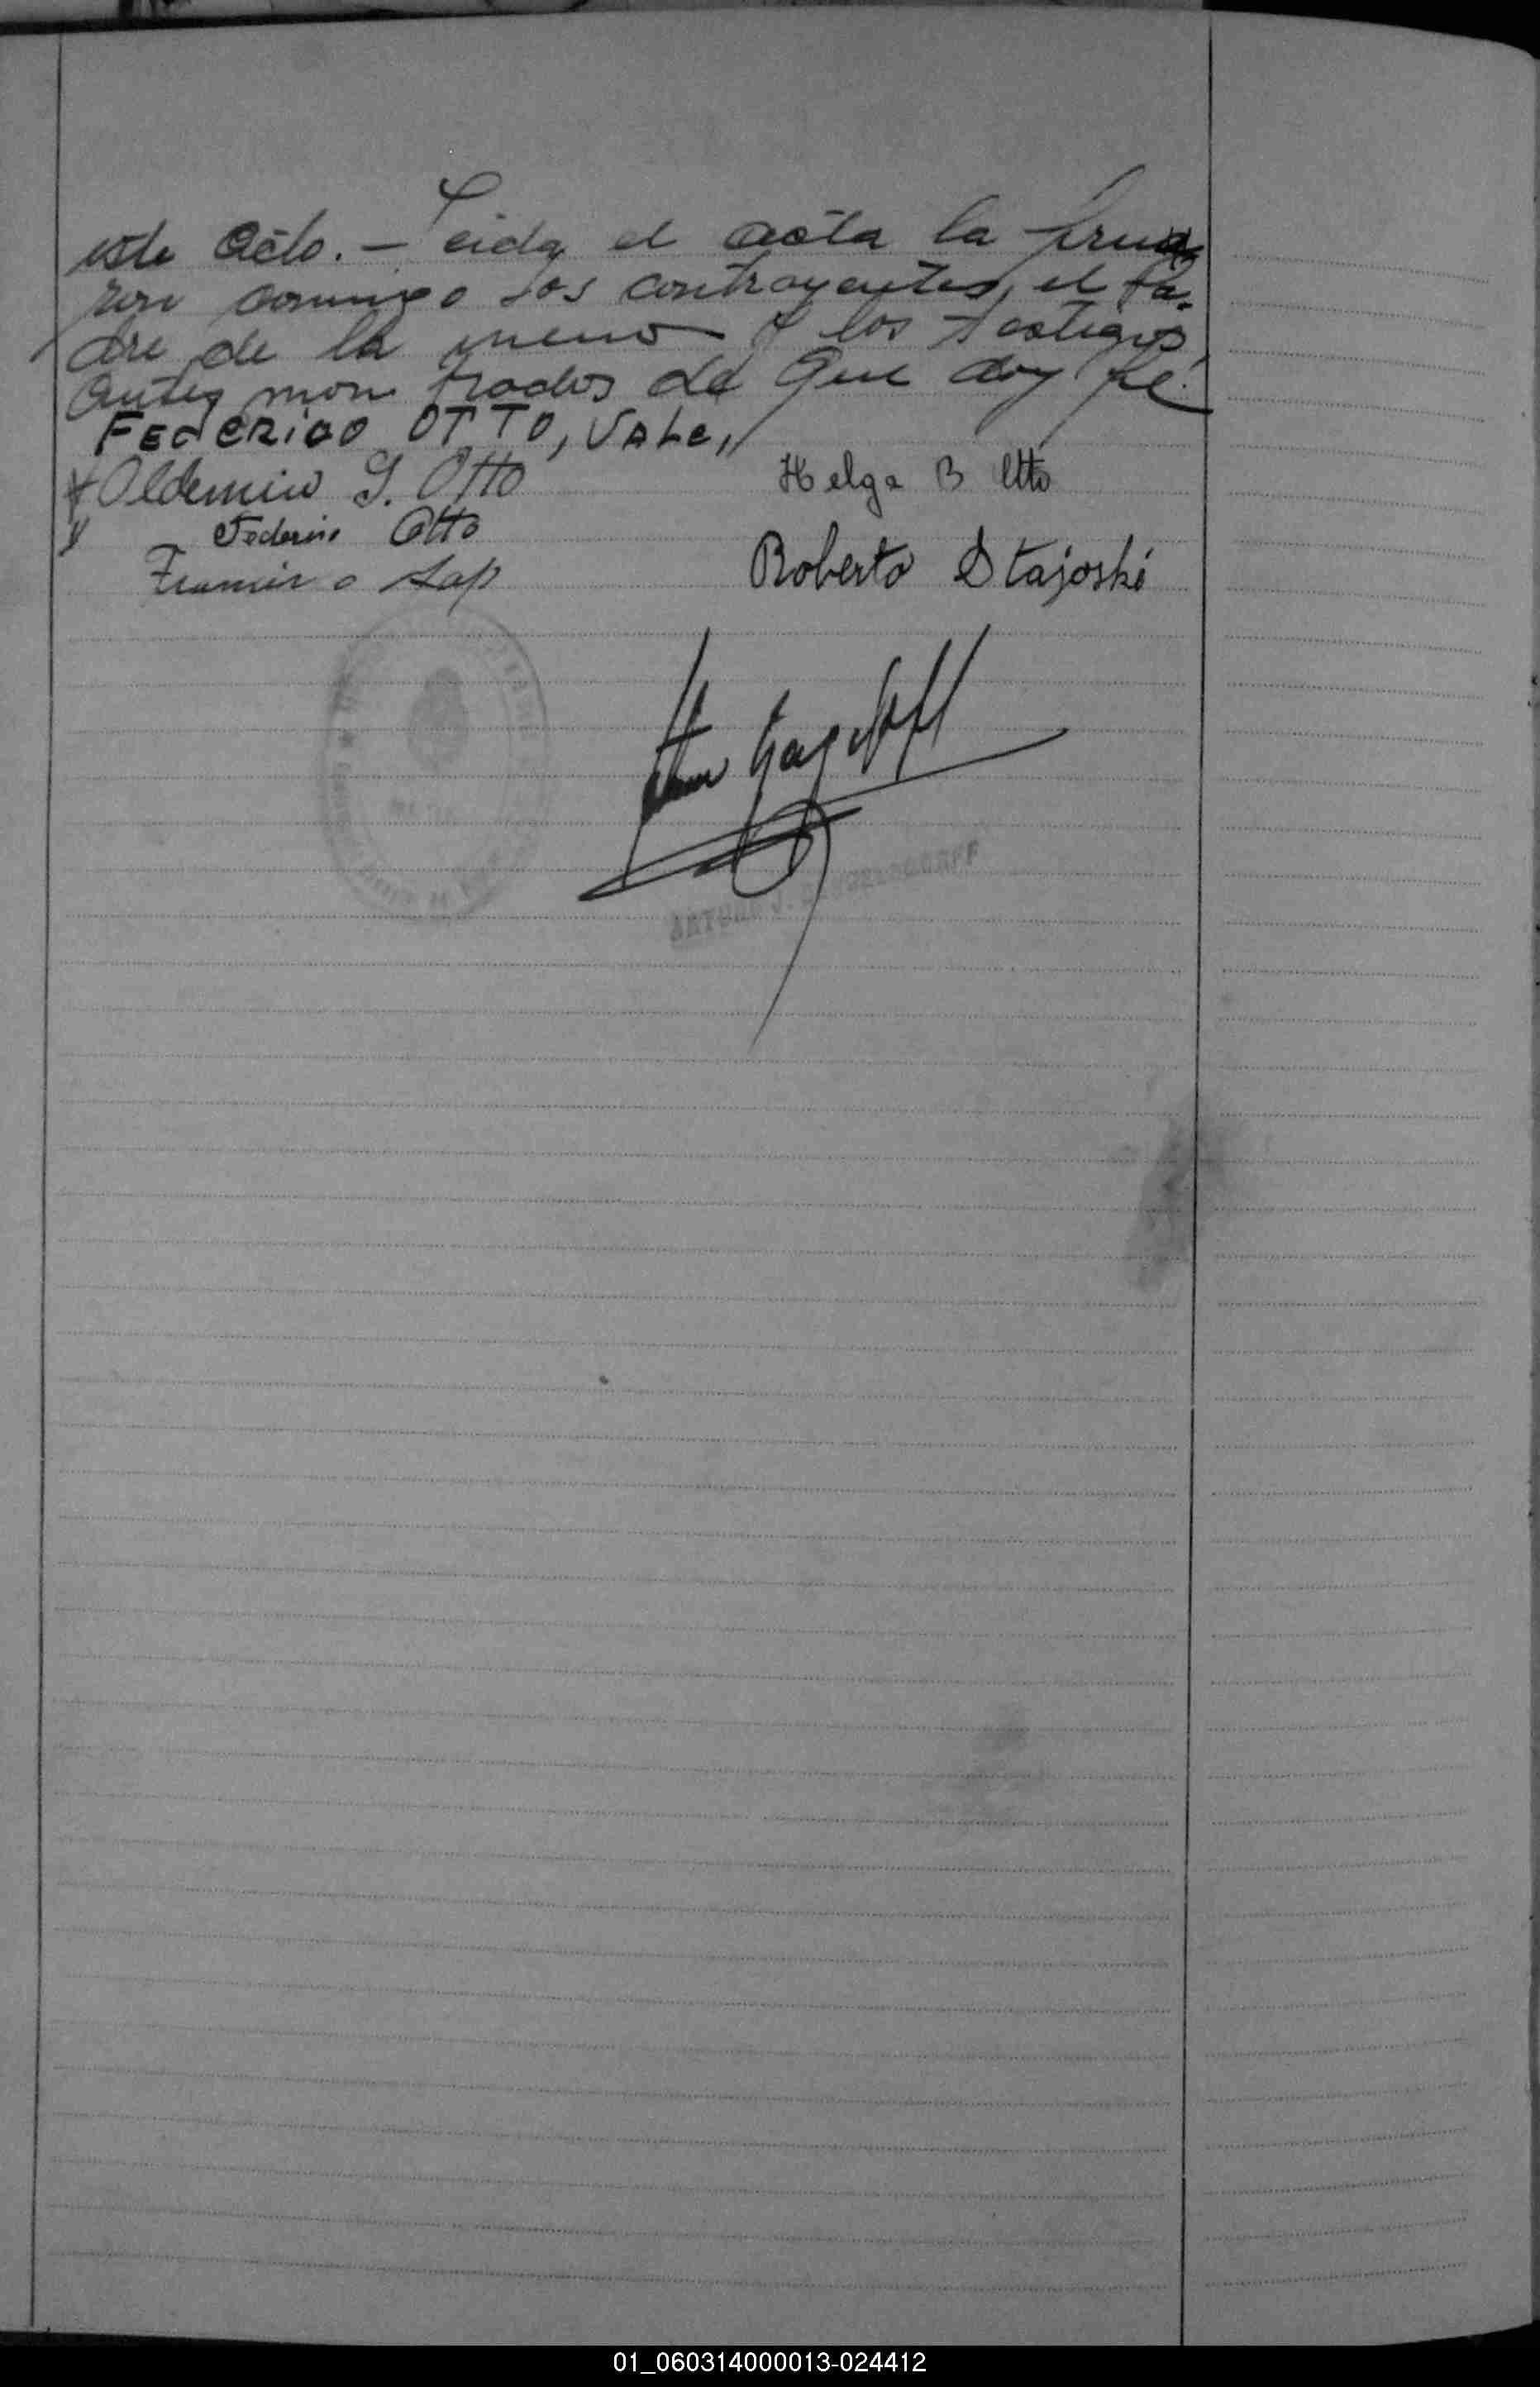 este Acto. - Leida el acta la firma
ron conmigo los contrayentes, el Pa-
dre de la menor y los testigos
antes mon trados de que doy fé
FEdERiCO OTTO, VALe,,
Oldemiro G. Otto Helga B Otto
Federico Otto
Francisco Roberto Stajoski
ARTURO J.
01_060314000013-024412